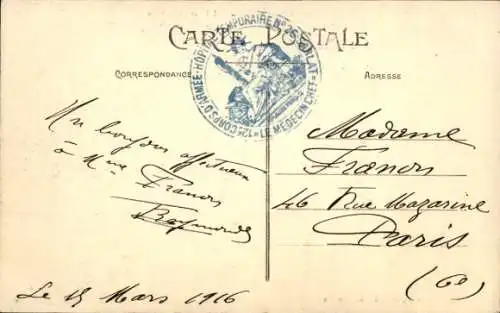 CARTE POSTALE
12e CORPS D'ARMÉE - HÔPITAL TEMPORAIRE N°
LE MÉDECIN CHEF
CORRESPONDANCE
ADRESSE
Un bonjour affectueux
à Mme Franon
Raymonde
Le 15 Mars 1916
Madame
Franon
46 Rue Mazarine
Paris
(6e)